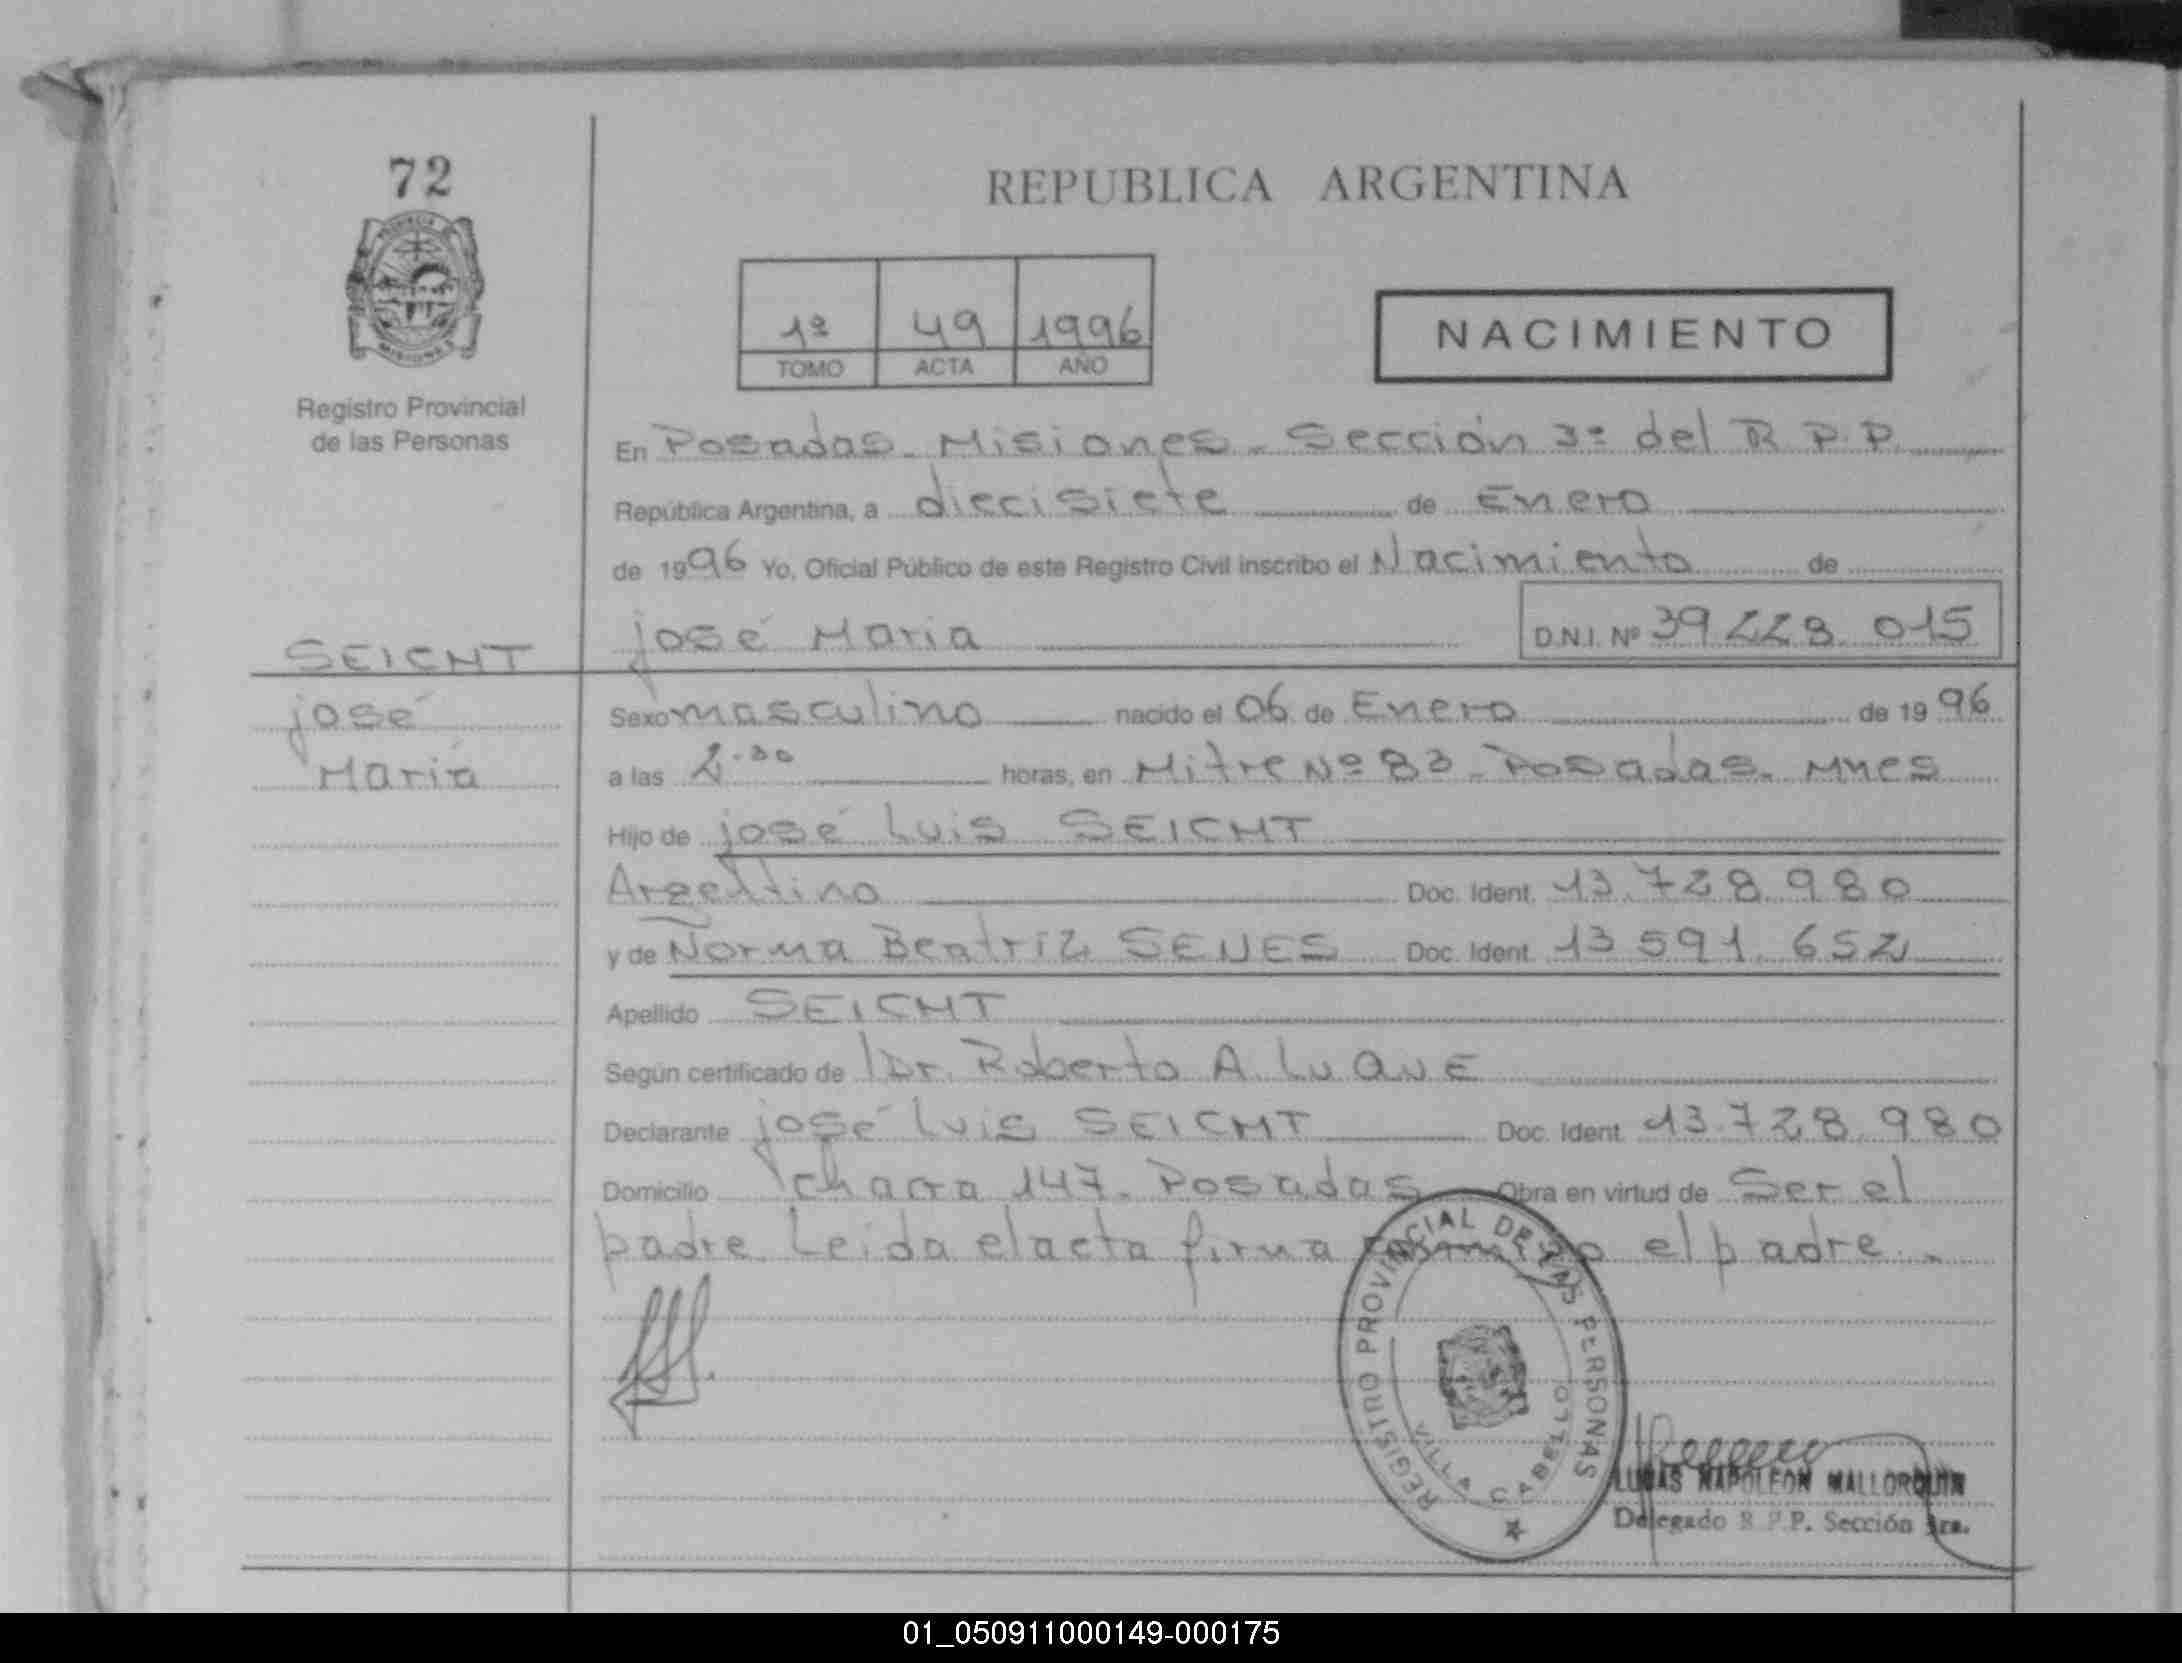 72
REPUBLICA ARGENTINA
1º 49 1996
TOMO ACTA AÑO
NACIMIENTO
Registro Provincial
de las Personas
En Posadas - Misiones - Sección 3º del R.P.P.
República Argentina, a diecisiete de Enero
de 1996 Yo, Oficial Público de este Registro Civil inscribo el Nacimiento de
josé Maria D.N.I. Nº 39 228 015
SEICHT
josé
Maria
Sexo masculino nacido el 06 de Enero de 1996
a las 2.30 horas, en Mitre Nº 83 - Posadas - Mnes
Hijo de josé Luis SEICHT
Argentino Doc. Ident. 13.728.980
y de Norma Beatriz SENES Doc. Ident. 13 591 652
Apellido SEICHT
Según certificado de Dr. Roberto A. LUQUE
Declarante josé Luis SEICHT Doc. Ident. 13.728.980
Domicilio chacra 147 - Posadas Obra en virtud de Ser el
padre. Leida el acta firma el padre. -
REGISTRO PROVINCIAL DE LAS PERSONAS
VILLA CABELLO
LUCAS NAPOLEON MALLORQUIN
Delegado R.P.P. Sección 3ra.
01_050911000149-000175